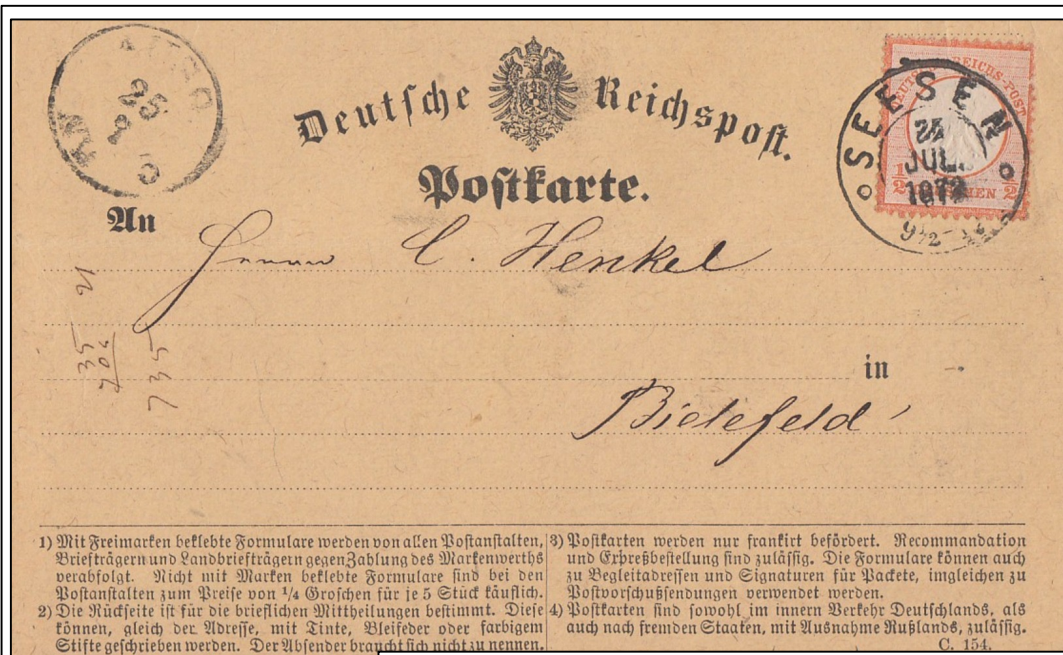 Deutsche Reichspost.
Postkarte.
DEUTSCHE REICHS-POST
SEESEN
25
JULI
1872
9½-
½ ½
25
5
An
Herrn C. Henkel
in
Bielefeld
735
735
1) Mit Freimarken beklebte Formulare werden von allen Postanstalten,
Briefträgern und Landbriefträgern gegen Zahlung des Markenwerths
verabfolgt. Nicht mit Marken beklebte Formulare sind bei den
Postanstalten zum Preise von 1/4 Groschen für je 5 Stück käuflich.
2) Die Rückseite ist für die brieflichen Mittheilungen bestimmt. Diese
können, gleich der Adresse, mit Tinte, Bleifeder oder farbigem
Stifte geschrieben werden. Der Absender braucht sich nicht zu nennen.
3) Postkarten werden nur frankirt befördert. Recommandation
und Expreßbestellung sind zulässig. Die Formulare können auch
zu Begleitadressen und Signaturen für Packete, imgleichen zu
Postvorschußsendungen verwendet werden.
4) Postkarten sind sowohl im innern Verkehr Deutschlands, als
auch nach fremden Staaten, mit Ausnahme Rußlands, zulässig.
C. 154.